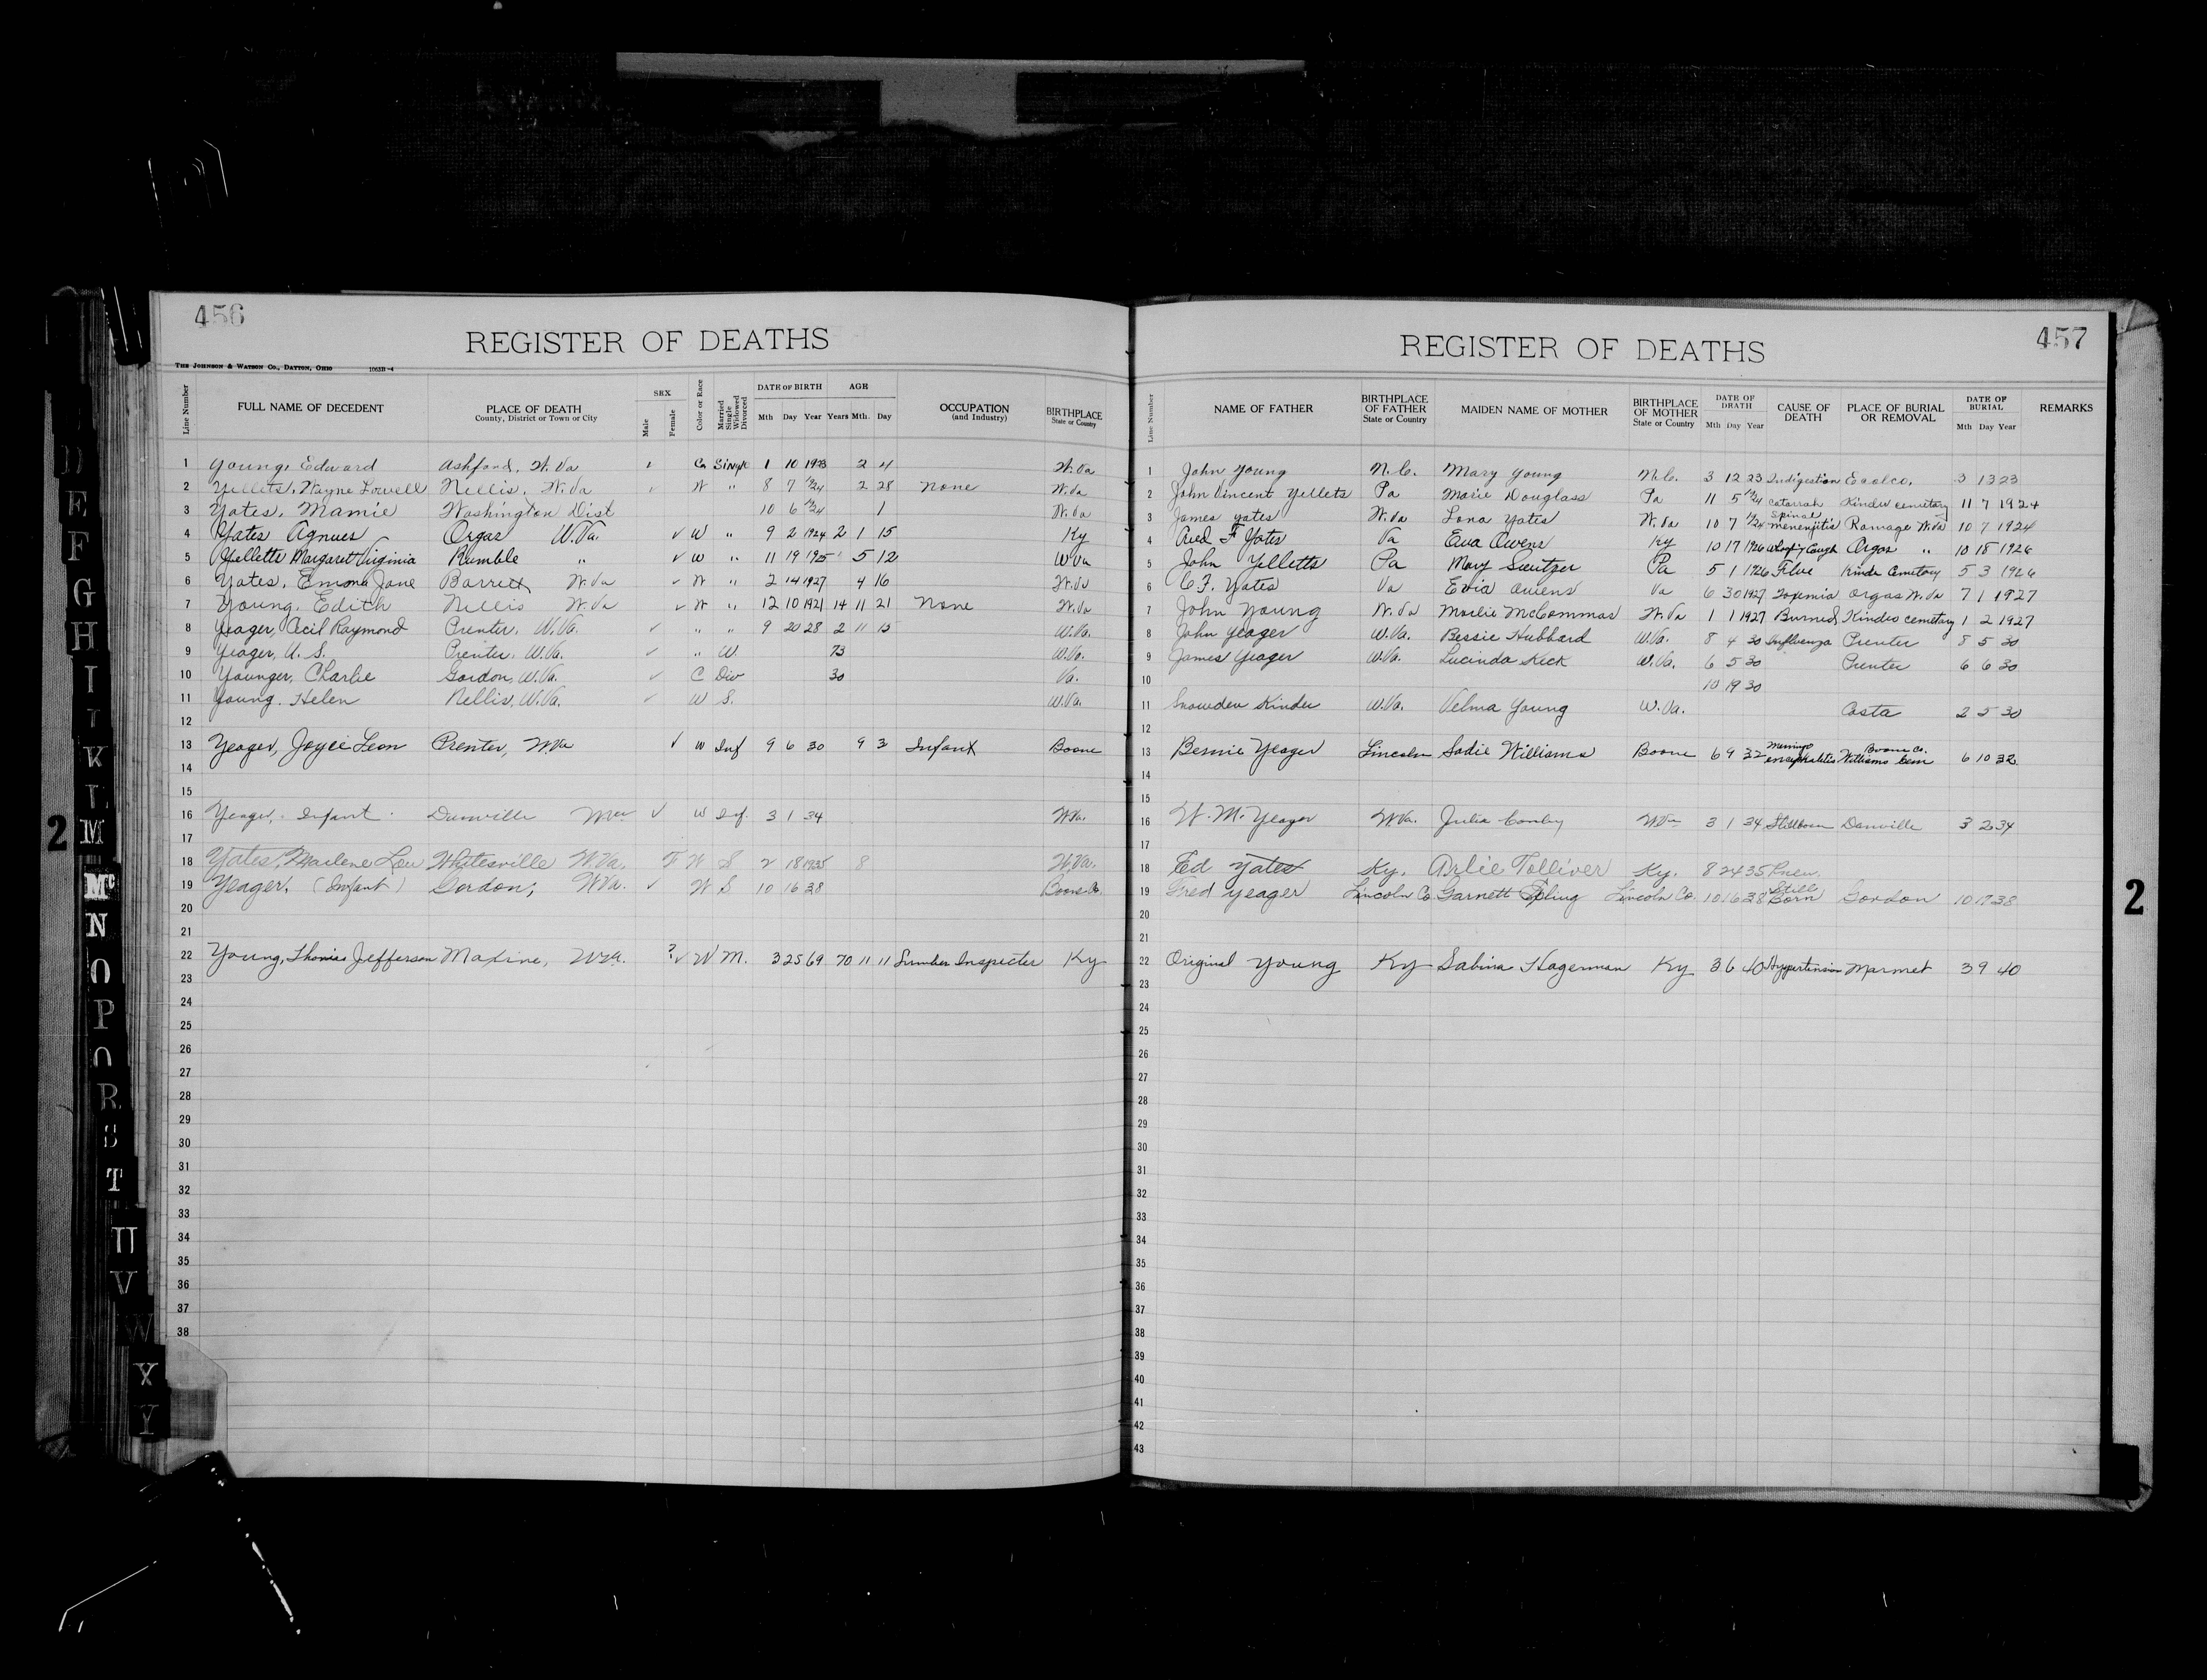 456
REGISTER OF DEATHS
THE JOHNSON & WATSON CO., DAYTON, OHIO 1063B-4
Line Number FULL NAME OF DECEDENT PLACE OF DEATH County, District or Town or City SEX Male Female Color or Race Married Single Widowed Divorced DATE OF BIRTH Mth Day Year AGE Years Mth. Day OCCUPATION (and Industry) BIRTHPLACE State or Country
1 Young, Edward Ashford, W. Va C Single 1 10 1923 2 4 W. Va
2 Yellets, Wayne Lowell Nellis, W. Va ✓ W " 8 7 1924 2 28 None W. Va
3 Yates, Mamie Washington Dist 10 6 1924 1 W. Va
4 Yates Agnues Orgas W. Va. ✓ W " 9 2 1924 2 1 15 Ky
5 Yelletts Margaret Virginia Rumble " ✓ W " 11 19 1925 5 12 W Va
6 Yates, Emma Jane Barrett W. Va ✓ W " 2 14 1927 4 16 W. Va
7 Young, Edith Nellis W. Va ✓ W " 12 10 1921 14 11 21 None W. Va
8 Yeager, Cecil Raymond Prenter, W. Va. ✓ " " 9 20 28 2 11 15 W. Va.
9 Yeager, U. S. Prenter, W. Va. ✓ " W. 73 W. Va.
10 Younger, Charlie Gordon, W. Va. ✓ C Div 30 Va.
11 Young, Helen Nellis, W. Va. ✓ W S. W. Va.
12
13 Yeager, Joyce Leon Prenter, W Va ✓ W Inf 9 6 30 9 3 Infant Boone
14
15
16 Yeager, Infant Danville W Va ✓ W Inf. 3 1 34 W. Va.
17
18 Yates, Marlene Lou Whitesville W. Va. F W S 2 18 1935 8 W. Va.
19 Yeager, (Infant) Gordon, W Va. ✓ W S 10 16 38 Boone Co.
20
21
22 Young, Thomas Jefferson Maxine, W Va. ?✓ W M. 3 25 69 70 11 11 Lumber Inspecter Ky
23
24
25
26
27
28
29
30
31
32
33
34
35
36
37
38
457
REGISTER OF DEATHS
Line Number NAME OF FATHER BIRTHPLACE OF FATHER State or Country MAIDEN NAME OF MOTHER BIRTHPLACE OF MOTHER State or Country DATE OF DEATH Mth Day Year CAUSE OF DEATH PLACE OF BURIAL OR REMOVAL DATE OF BURIAL Mth Day Year REMARKS
1 John Young N. C. Mary Young N. C. 3 12 23 Indigestion 3 13 23
2 John Vincent Yellets Pa Marie Douglass Pa 11 5 1924 catarrah Kinder cemetary 11 7 1924
3 James Yates W. Va Lona Yates W. Va 10 7 1924 Spinal menenjitis Ramage W. Va 10 7 1924
4 F Yates Va Eva Owens Ky 10 17 1926 Cough Orgas " 10 18 1926
5 John Yelletts Pa Mary Switzer Pa 5 1 1926 Flue Kinder Cemetary 5 3 1926
6 C. F. Yates Va Evia Owens Va 6 30 1927 Toxemia Orgas W. Va 7 1 1927
7 John Young W. Va McCommas W. Va 1 1 1927 Burned Kinder cemetary 1 2 1927
8 John Yeager W. Va. Bessie Hubbard W. Va. 8 4 30 Influenza Prenter 8 5 30
9 James Yeager W. Va. Lucinda Keck W. Va. 6 5 30 Prenter 6 6 30
10 10 19 30
11 Snowden Kinder W. Va. Velma Young W. Va. Costa 2 5 30
12
13 Bernie Yeager Lincoln Sadie Williams Boone 6 9 32 Meningo encephalitis Williams Cem Boone Co. 6 10 32
14
15
16 W. M. Yeager W Va. Julia W Va 3 1 34 Stillborn Danville 3 2 34
17
18 Ed Yates Ky. Arlie Tolliver Ky. 8 24 35 Pneu.
19 Fred Yeager Lincoln Co. Garnett Lincoln Co. 10 16 38 Still Born Gordon 10 17 38
20
21
22 Original Young Ky Sabina Hagerman Ky 3 6 40 Hypertension Marmet 3 9 40
23
24
25
26
27
28
29
30
31
32
33
34
35
36
37
38
39
40
41
42
43
D
E
F
G
H
I
K
L
M
Mc
N
O
P
R
S
T
U
V
W
X
Y
2
2